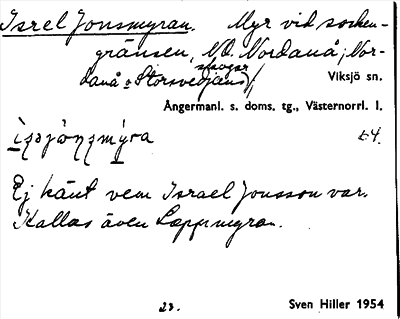 Isrel Jonsmyran. Myr vid socken-
gränsen, NO. Nordanå; Nor-
danå o Storsvedjans skogar,
Viksjö sn.
Ångermanl. s. doms. tg., Västernorrl. l.
64.
Ej känt vem Israel Jonsson var.
Kallas även Lappmyran.
23. Sven Hiller 1954